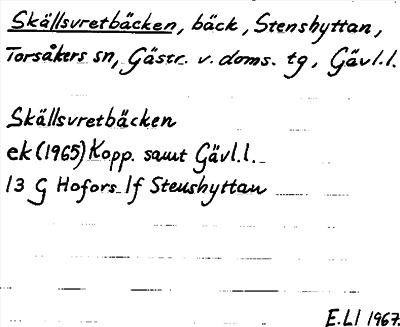 Skällsvretbäcken, bäck, Stenshyttan,
Torsåkers sn, Gästr. v. doms. tg, Gävl.l.
Skällsvretbäcken
ek (1965) Kopp. samt Gävl.l.
13 G Hofors 1f Stenshyttan
E.Ll 1967.